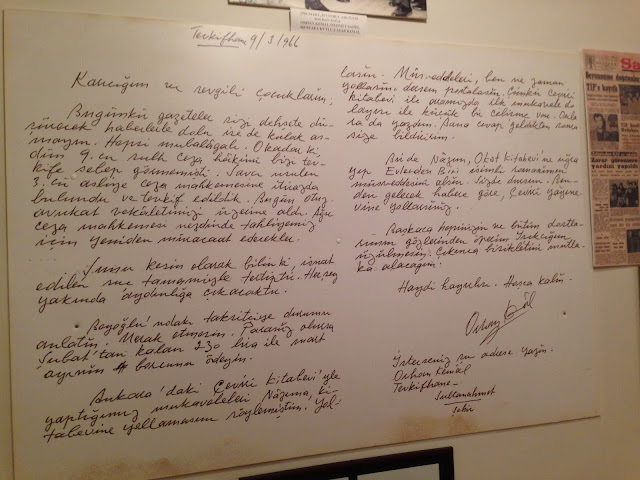 Tevkifhane 9/3/966
Karıcığım ve sevgili çocuklarım,
Bugünkü gazeteler sizi dehşete dü-
şürecek haberlerle dolu ise de kulak as-
mayın. Hepsi mübalâğalı. Okudum ki,
9. en sulh ceza hâkimi bizi tev-
kife sebep görmemişti. Savcı
3. en asliye ceza mahkemesine itirazda
bulundu ve tevkif edildik. Bugün otuz
avukat vekâletimizi üzerine aldı. Ağır
ceza mahkemesi nezdinde tahliyemiz
için yeniden müracaat edecekler.
Şunu kesin olarak bilin ki, isnat
edilen suç tamamiyle tertiptir. Herşey
yakında aydınlığa çıkacaktır.
Beyoğlu'ndaki taksitçiye durumu
anlatın. Merak etmesin. Paranız olursa
Şubat'tan kalan 230 lira ile mart
ayının borcunu ödeyin.
Ankara'daki Çevri kitabevi'yle
yaptığımız mukaveleleri Nâzıma, ki-
tabevine yollamasını söylemiştim. Yol-
lasın. Müsveddeleri, ben ne zaman
yollarsın, dersem postalasın. Çünkü Çevri
kitabevi ile aramızda ilk mukavele do-
layısı ile küçük bir çekişme var. Onla-
ra da yazdım. Bana cevap geldikten sonra
size bildiririm.
Bir de Nâzım, Okat Kitabevi'ne uğra-
yıp Evlerden Biri isimli romanımın
müsveddesini alsın. Sizde dursun. Ben-
den gelecek habere göre, Çevri Yayıne-
vine yollarsınız.
Başkaca hepinizin ve bütün dostla-
rımın gözlerinden öperim. Işıkçığım
üzülmesin. Çıkınca bisikletini mutla-
ka alacağım.
Haydi hayırlısı. Hoşça kalın.
İsterseniz şu adrese yazın.
Orhan Kemal
Tevkifhane-
Sultanahmet
Şehir